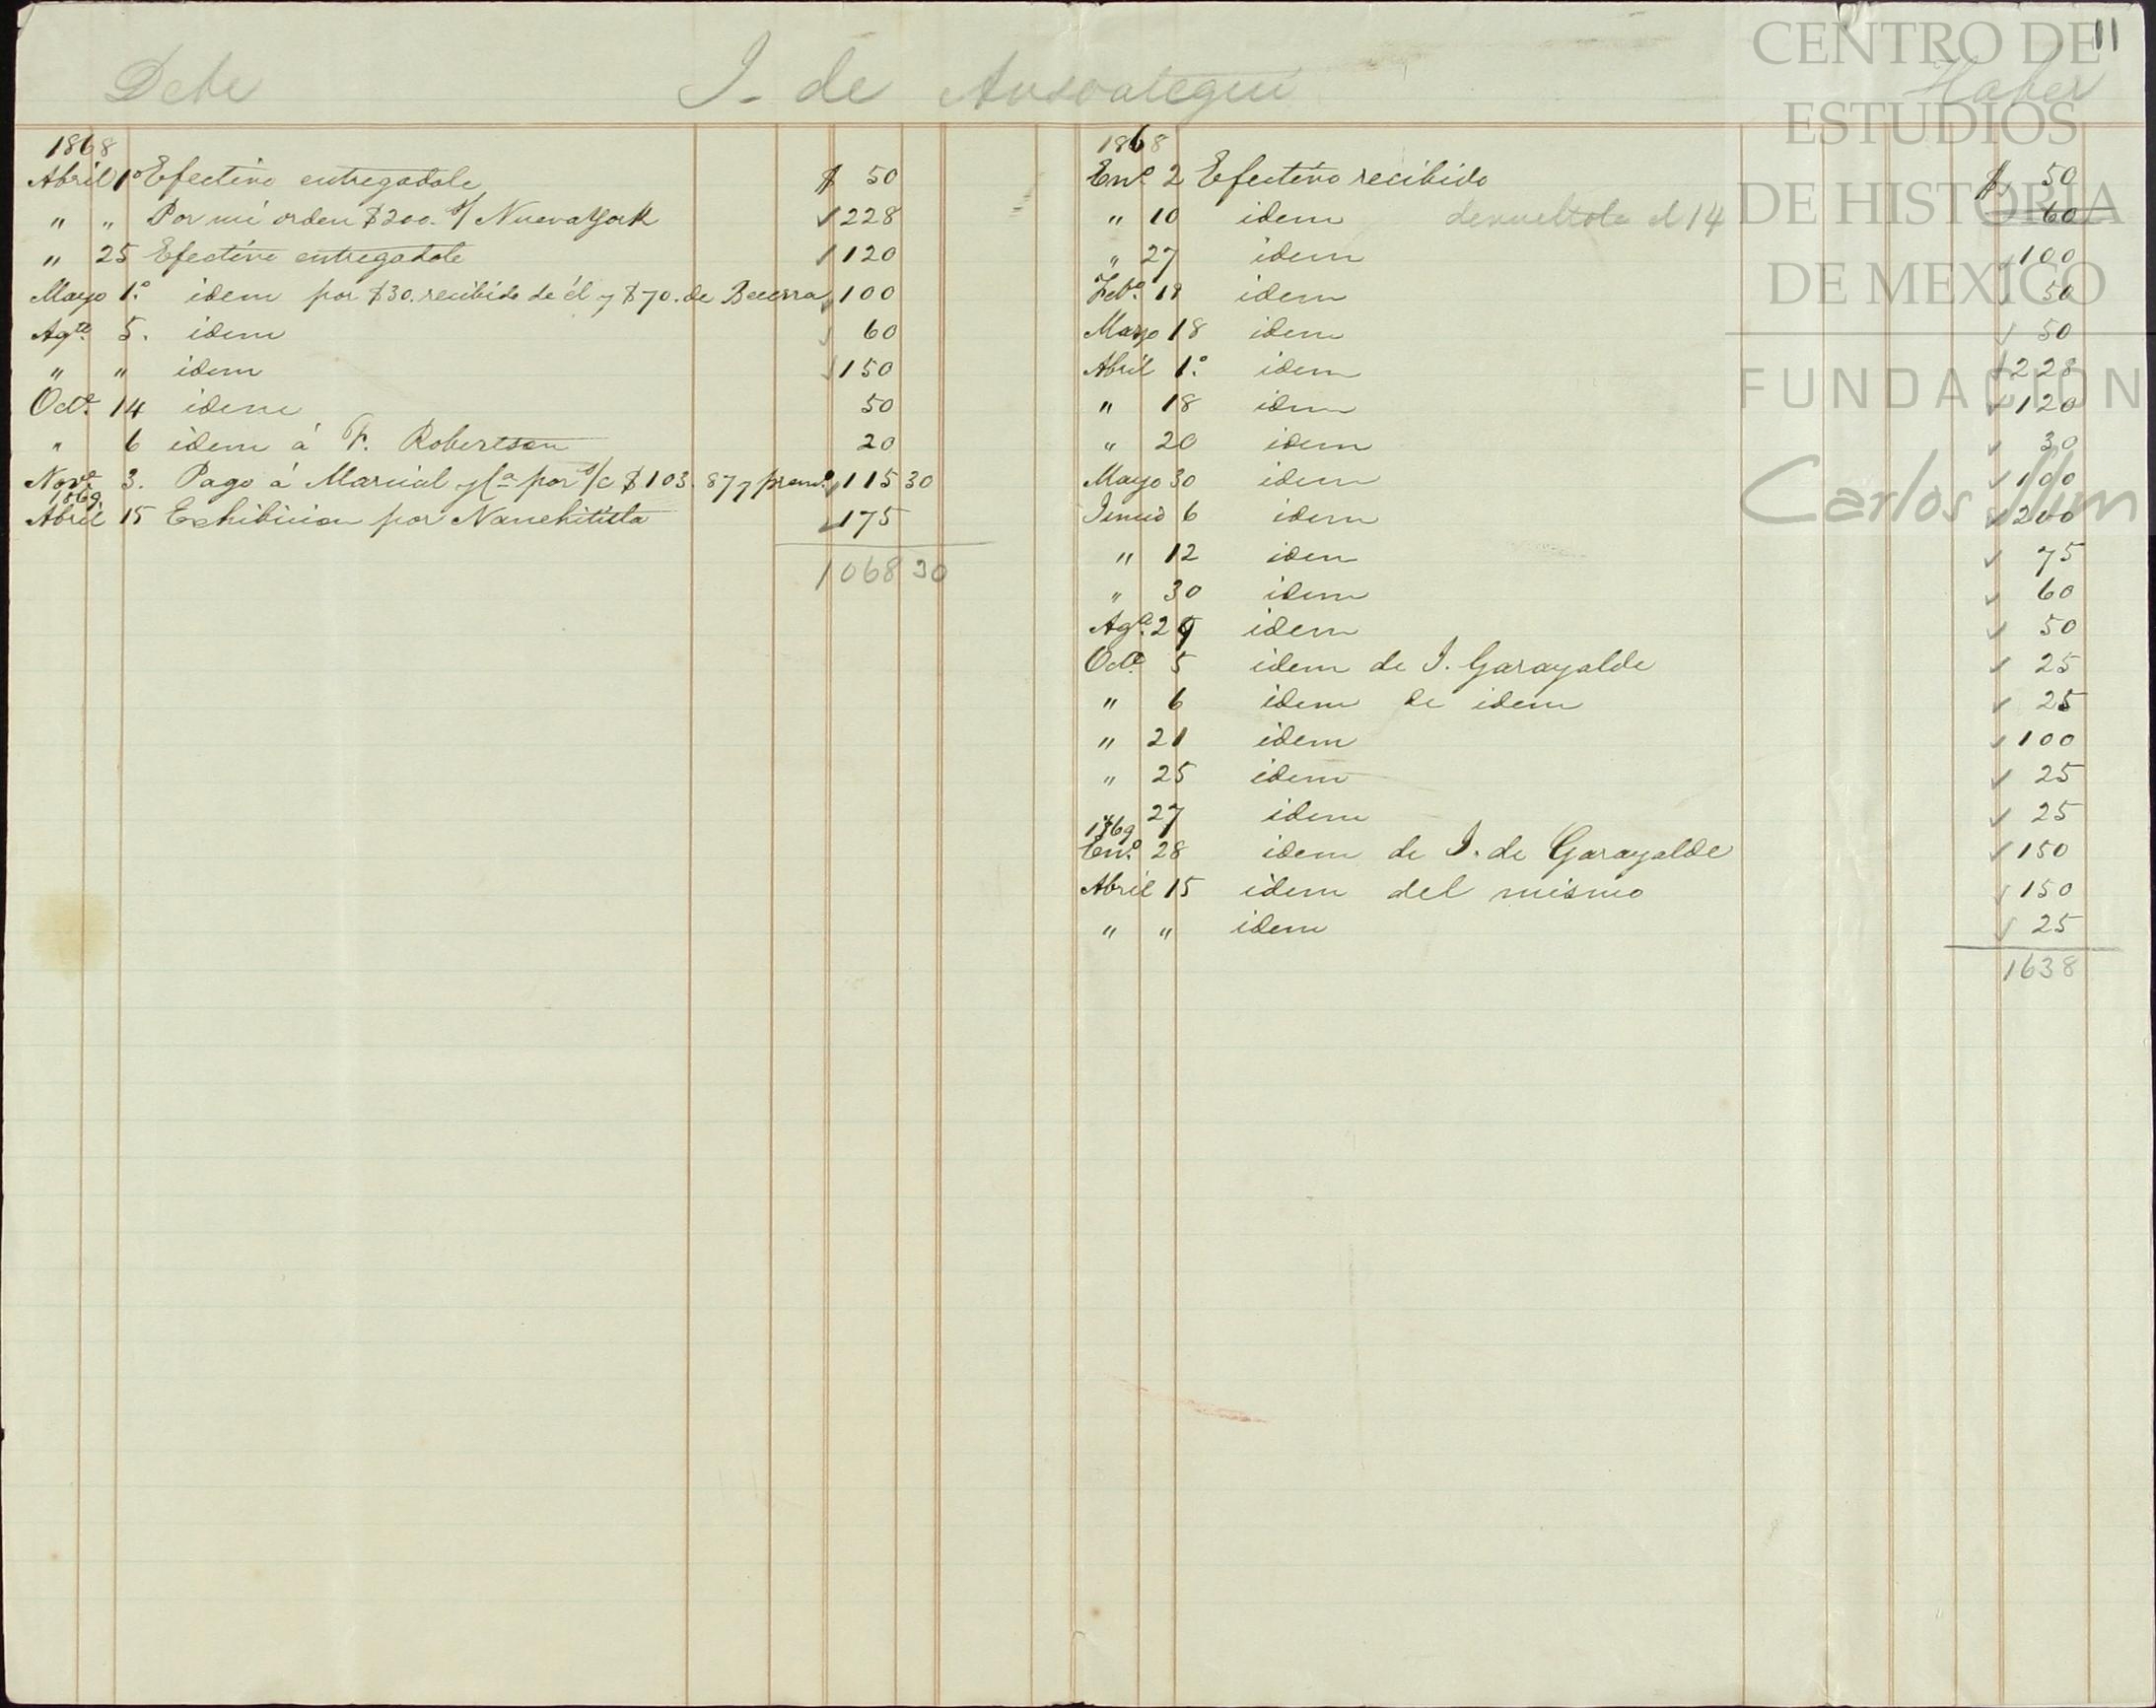 11
Debe I. de Ansoategui Haber
1868
Abril 1º Efectivo entregadole $ 50
" " Por mi orden $200. s/ Nueva York 228
" 25 Efectivo entregadole 120
Mayo 1º idem por $30. recibido de él y $70. de Becerra 100
Agto. 5. idem 60
" " idem 150
Octe. 14 idem 50
" 6 idem á F. Robertson 20
Nove. 3. Pago á Marcial por s/c $103.87 y prem. 115 30
1869
Abril 15 Exhibicion por Nanchititla 175
1068 30
1868
Eno. 2 Efectivo recibido $ 50
" 10 idem devueltole el 14 60
" 27 idem 100
Febo. 18 idem 50
Marzo 18 idem 50
Abril 1º idem 228
" 18 idem 120
" 20 idem 30
Mayo 30 idem 100
Junio 6 idem 200
" 12 idem 75
" 30 idem 60
Ago. 29 idem 50
Octe. 5 idem de I. Garayalde 25
" 6 idem de idem 25
" 21 idem 100
" 25 idem 25
" 27 idem 25
1869
Eno. 28 idem de I. de Garayalde 150
Abril 15 idem del mismo 150
" " idem 25
1638
CENTRO DE
ESTUDIOS
DE HISTORIA
DE MEXICO
FUNDACION
Carlos Slim